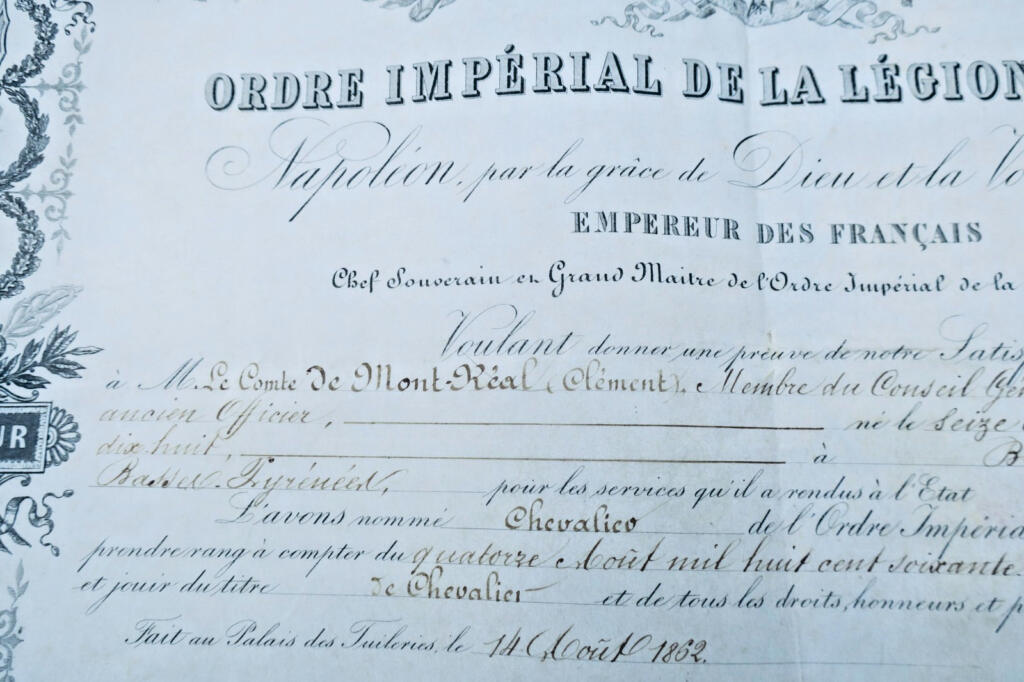 ORDRE IMPÉRIAL DE LA LÉGION
Napoléon, par la grâce de Dieu et la Vo
EMPEREUR DES FRANÇAIS
Chef Souverain et Grand Maitre de l'Ordre Impérial de la
Voulant donner une preuve de notre Satis
à M. Le Comte De Mont-Réal (Clément), Membre du Conseil Gén
ancien Officier, né le Seize
dix huit, à B
UR
Basses Pyrénées, pour les services qu'il a rendus à l'Etat
L'avons nommé Chevalier de l'Ordre Impéria
prendre rang à compter du quatorze Août mil huit cent soixante
et jouir du titre de Chevalier et de tous les droits, honneurs et p
Fait au Palais des Tuileries, le 14 Août 1862.